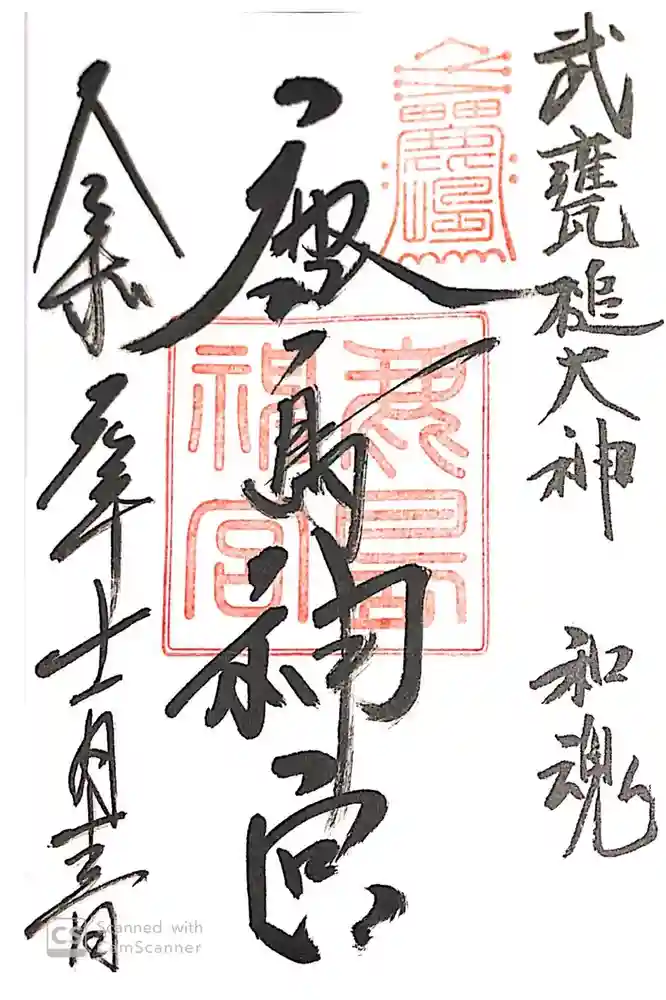 武甕槌大神 和魂
鹿島神宮
令和元年十一月
鹿島神宮
Scanned with
CamScanner
CS